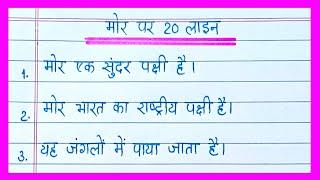 मोर पर 20 लाइन
1. मोर एक सुंदर पक्षी है।
2. मोर भारत का राष्ट्रीय पक्षी है।
3. यह जंगलों में पाया जाता है।